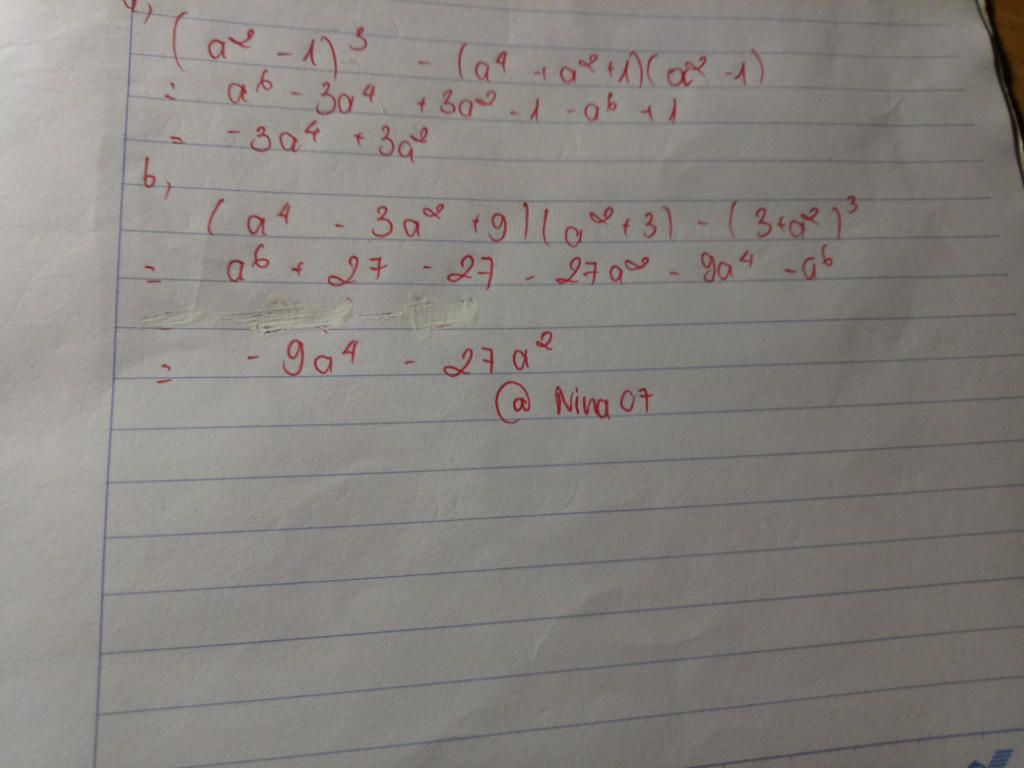 a,
(a² - 1)³ - (a⁴ + a² + 1)(a² - 1)
= a⁶ - 3a⁴ + 3a² - 1 - a⁶ + 1
= -3a⁴ + 3a²
b,
(a⁴ - 3a² + 9)(a² + 3) - (3+a²)³
= a⁶ + 27 - 27 - 27a² - 9a⁴ - a⁶
= - 9a⁴ - 27a²
@ Nina 07